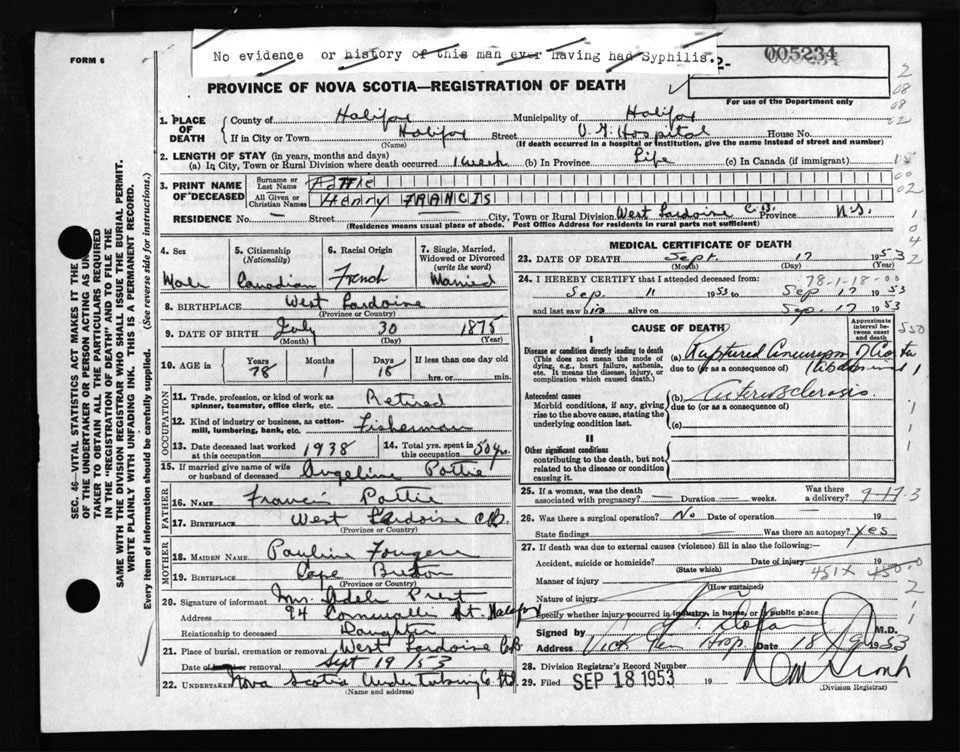 No evidence or history of this man ever having had Syphilis.
FORM 6
2- 005234
PROVINCE OF NOVA SCOTIA—REGISTRATION OF DEATH
For use of the Department only
1. PLACE OF DEATH
County of Halifax Municipality of Halifax
If in City or Town Halifax Street V. G. Hospital House No.
(Name) (If death occurred in a hospital or institution, give the name instead of street and number)
2. LENGTH OF STAY (in years, months and days)
(a) In City, Town or Rural Division where death occurred 1 week (b) In Province Life (c) In Canada (if immigrant)
3. PRINT NAME OF DECEASED
Surname or Last Name Pottie
All Given or Christian Names Henry FRANCIS
RESIDENCE No. — Street City, Town or Rural Division West Lardoise C.B. Province N.S.
(Residence means usual place of abode. Post Office Address for residents in rural parts not sufficient)
4. Sex Male
5. Citizenship (Nationality) Canadian
6. Racial Origin French
7. Single, Married, Widowed or Divorced (write the word) Married
8. BIRTHPLACE West Lardoise
(Province or Country)
9. DATE OF BIRTH July 30 1875
(Month) (Day) (Year)
10. AGE in Years 78 Months 1 Days 18 If less than one day old hrs. or min.
OCCUPATION
11. Trade, profession, or kind of work as spinner, teamster, office clerk, etc. Retired
12. Kind of industry or business, as cotton-mill, lumbering, bank, etc. Fisherman
13. Date deceased last worked at this occupation 1938
14. Total yrs. spent in this occupation 50 yrs.
15. If married give name of wife or husband of deceased Angeline Pottie
FATHER
16. NAME Francis Pottie
17. BIRTHPLACE West Lardoise C.B.
(Province or Country)
MOTHER
18. MAIDEN NAME Pauline Fougere
19. BIRTHPLACE Cape Breton
(Province or Country)
20. Signature of informant Mrs. Adele Prest
Address 94 Cornwallis St. Halifax
Relationship to deceased Daughter
21. Place of burial, cremation or removal West Lardoise C.B.
Date of burial or removal Sept 19/53
22. UNDERTAKER Nova Scotia Undertaking Co. Ltd
(Name and address)
MEDICAL CERTIFICATE OF DEATH
23. DATE OF DEATH Sept. 17 1953
(Month) (Day) (Year)
78-1-18-00
24. I HEREBY CERTIFY that I attended deceased from:
Sep. 11 1953 to Sep 17 1953
and last saw him alive on Sep. 17 1953
CAUSE OF DEATH
Approximate interval between onset and death
I
Disease or condition directly leading to death
(This does not mean the mode of dying, e.g., heart failure, asthenia, etc. It means the disease, injury, or complication which caused death.
(a) Ruptured Aneurysm of Aorta
due to (or as a consequence of) (Abdominal)
Antecedent causes
Morbid conditions, if any, giving rise to the above cause, stating the underlying condition last.
(b) Arteriosclerosis.
due to (or as a consequence of)
(c)
II
Other significant conditions contributing to the death, but not related to the disease or condition causing it.
25. If a woman, was the death associated with pregnancy? — Duration — weeks. Was there a delivery? 9-17-3
26. Was there a surgical operation? No Date of operation 19
State findings Was there an autopsy? Yes
27. If death was due to external causes (violence) fill in also the following:—
Accident, suicide or homicide? Date of injury 19
(State which)
451X
Manner of injury
(How sustained)
Nature of injury
Specify whether injury occurred in industry, in home, or in public place.
Signed by M.D.
Address Vict. Gen Hosp. Date 18/9 1953
28. Division Registrar's Record Number
29. Filed SEP 18 1953 19
(Division Registrar)
SEC. 46—VITAL STATISTICS ACT MAKES IT THE
OF THE UNDERTAKER OR PERSON ACTING AS UN
TAKER TO OBTAIN ALL THE PARTICULARS REQUIRED
IN THE "REGISTRATION OF DEATH" AND TO FILE THE
SAME WITH THE DIVISION REGISTRAR WHO SHALL ISSUE THE BURIAL PERMIT.
WRITE PLAINLY WITH UNFADING INK. THIS IS A PERMANENT RECORD.
Every item of information should be carefully supplied. (See reverse side for instructions.)